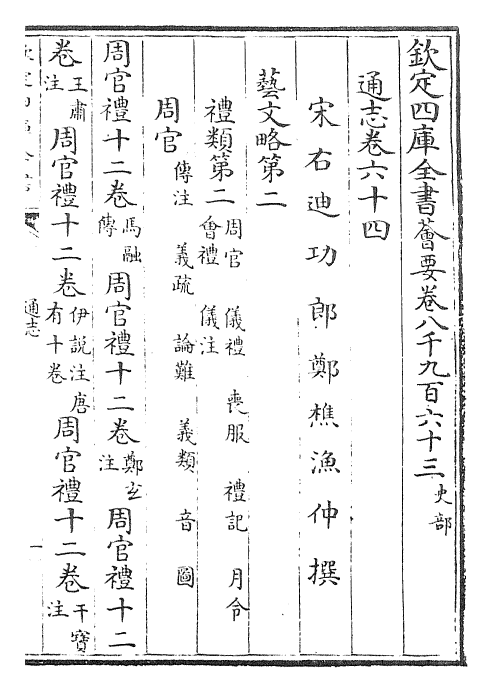 欽定四庫全書薈要卷八千九百六十三史部
通志卷六十四
宋右迪功郎鄭樵漁仲撰
藝文略第二
禮類第二周官 儀禮 喪服 禮記 月令會禮 儀注
周官傳注 義疏 論難 義類 音 圖
周官禮十二卷馬融傳 周官禮十二卷鄭玄注 周官禮十二
卷王肅注 周官禮十二卷伊說注唐有十卷 周官禮十二卷干寶注
通志
一